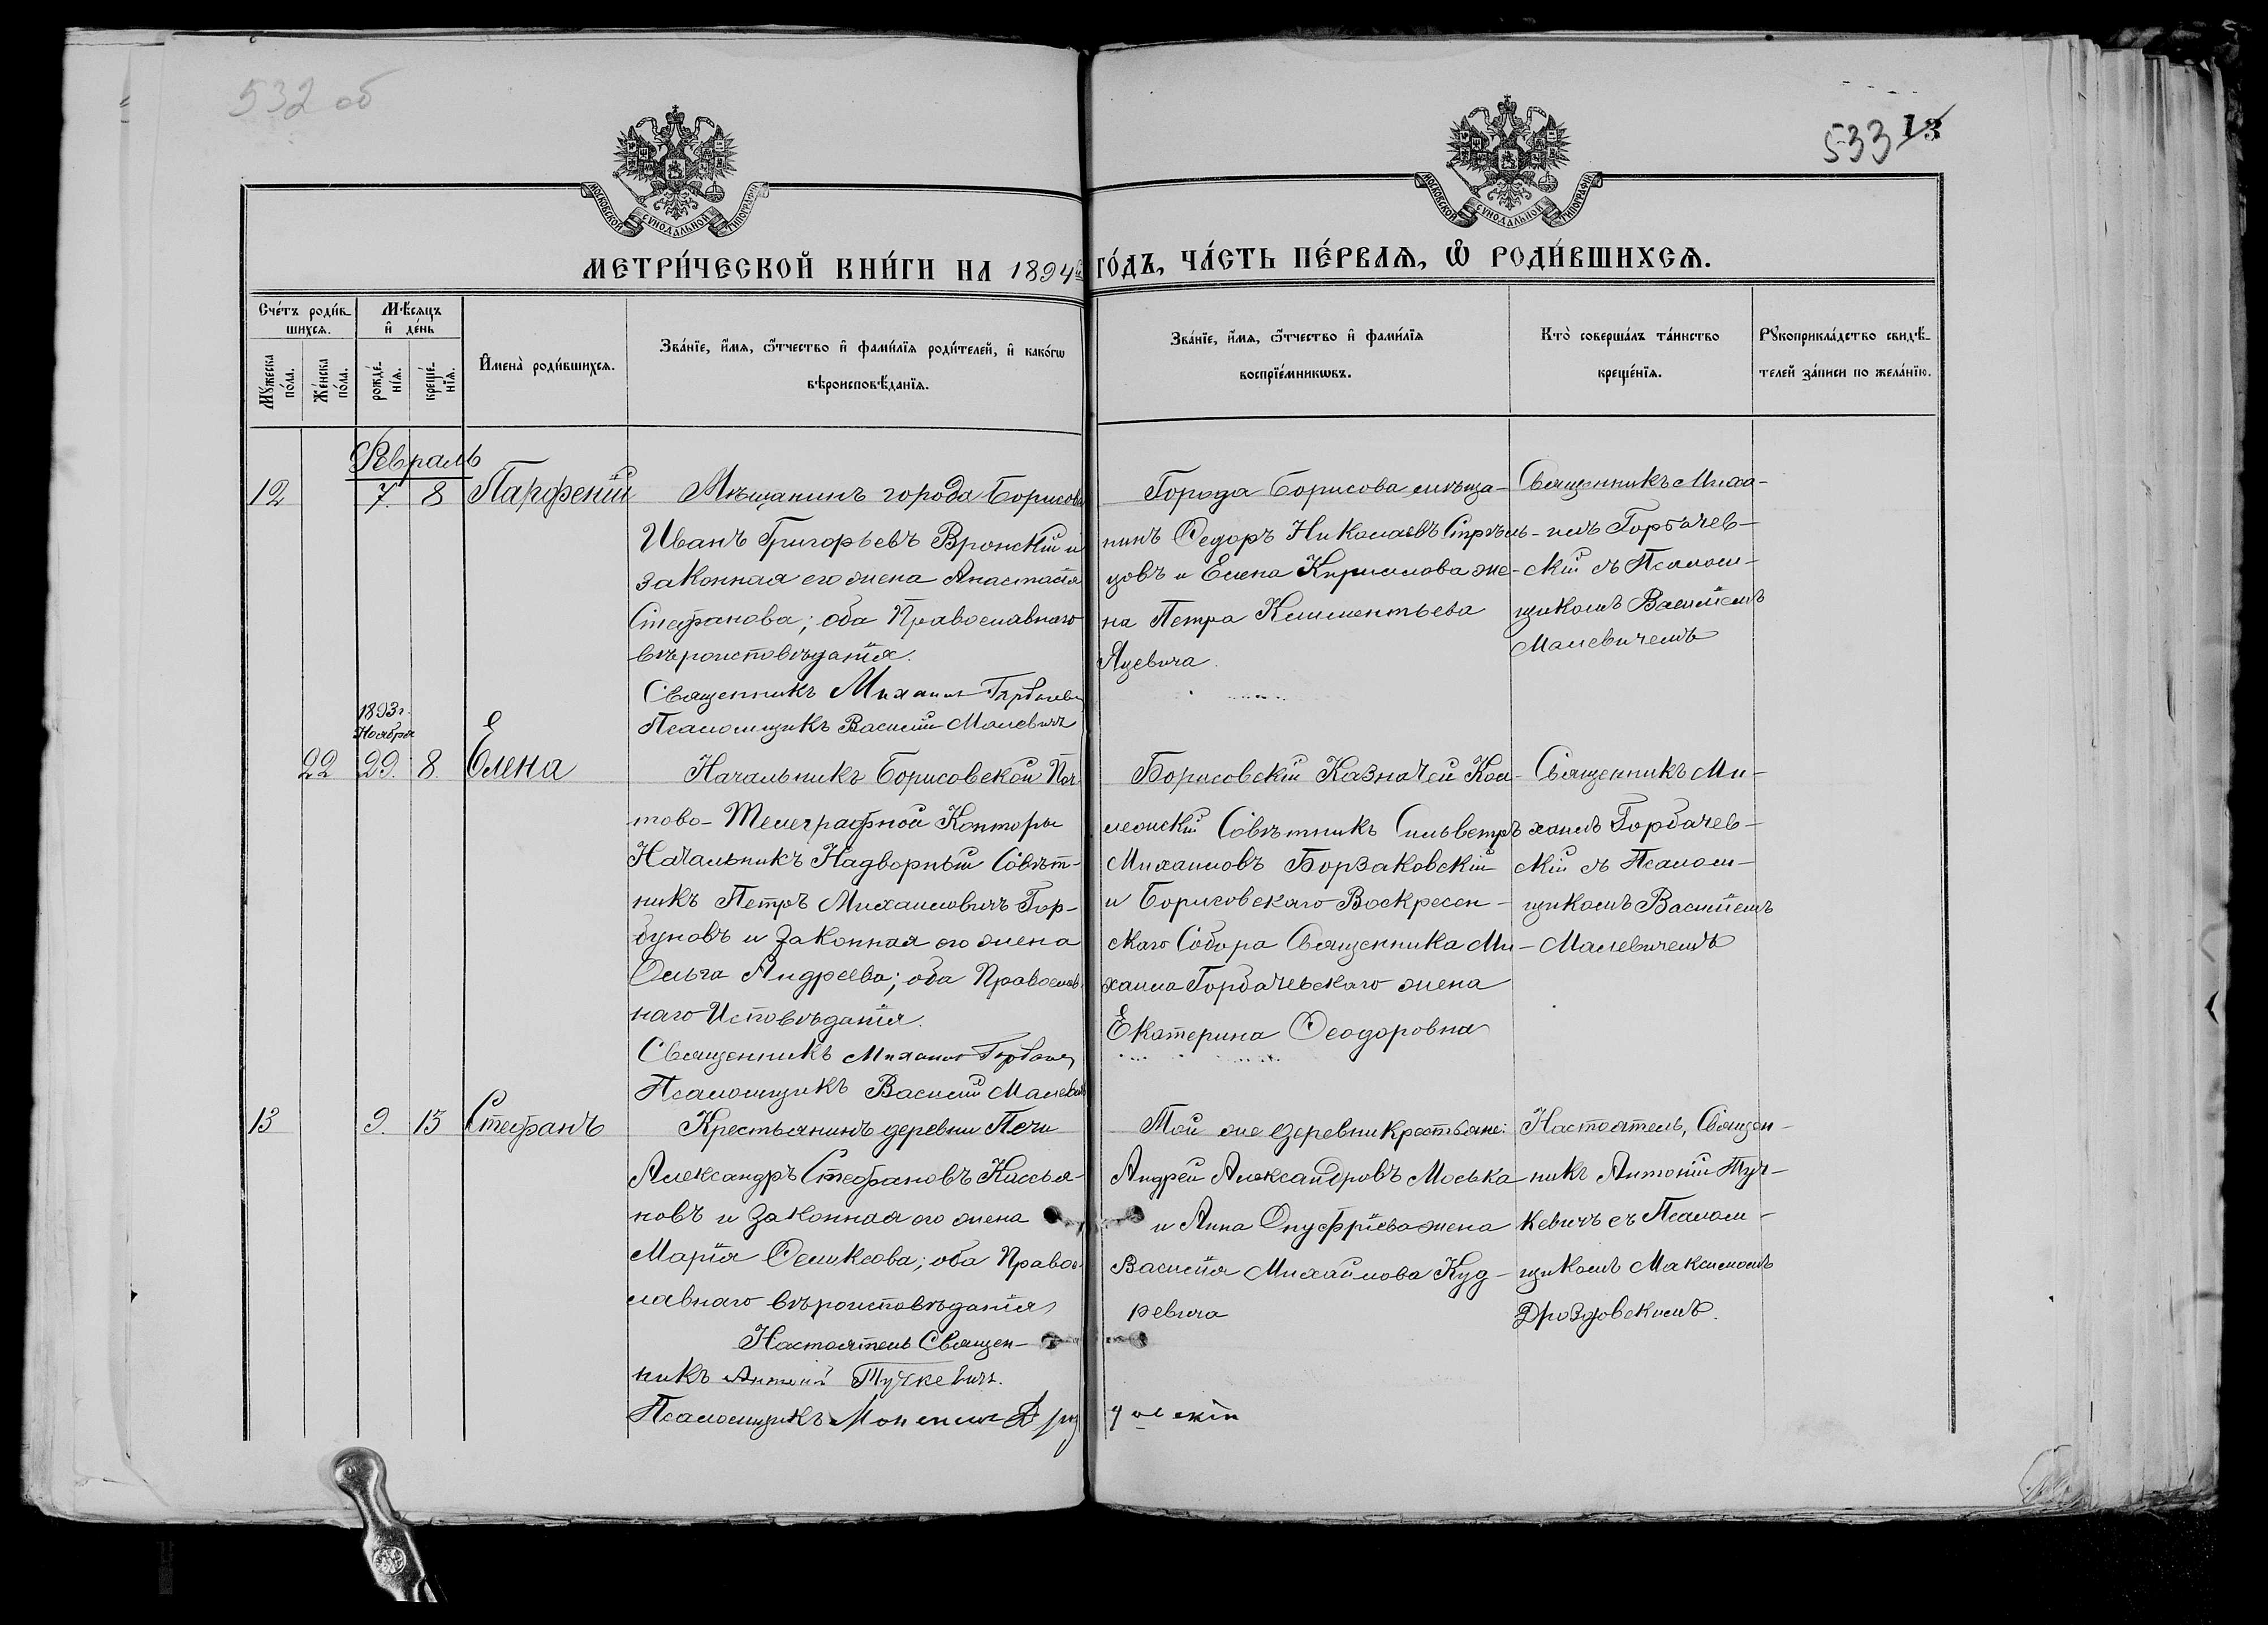 532 об
533 13
МОСКОВСКОЙ СУНОДАЛЬНОЙ ТИПОГРАФІИ
МОСКОВСКОЙ СУНОДАЛЬНОЙ ТИПОГРАФІИ
МЕТРИ́ЧЕСКОЙ КНИ́ГИ НА 1894й ГО́ДЪ, ЧА́СТЬ ПЕ́РВАѦ, Ѽ РОДИ́ВШИХСѦ.
Сче́тъ роди́в-
шихсѧ.
Мѣ́сѧцъ
и҆ де́нь
Мꙋ́жеска
по́ла.
Же́нска
по́ла.
рожде́-
нїѧ.
креще́-
нїѧ.
И҆мена̀ роди́вшихсѧ.
Зва́нїе, и҆́мѧ, ѻ҆́тчество и҆ фами́лїѧ роди́телей, и҆ како́гѡ
вѣроисповѣ́данїѧ.
Зва́нїе, и҆́мѧ, ѻ҆́тчество и҆ фами́лїѧ
воспрїе́мникѡвъ.
Кто̀ соверша́лъ та́инство
креще́нїѧ.
Рꙋкоприкла́дство свидѣ́-
телей за́писи по жела́нїю.
Февраль
12 7. 8 Парфеній
Мѣщанинъ города Борисова
Иванъ Григорьевъ Вронскій и
законная его жена Анастасія
Стефанова; оба Православнаго
вѣроисповѣданія.
Священникъ Михаилъ Горбачев
Псаломщикъ Василій Малевичъ
Города Борисова мѣща-
нинъ Федоръ Николаевъ Стрѣль-
цовъ и Елена Кириллова же-
на Петра Климентьева
Яцевича.
Священникъ Миха-
илъ Горбачев-
скій съ Псалом-
щикомъ Василіемъ
Малевичемъ
1893 г.
Ноября
22 29. 8. Елена
Начальникъ Борисовской Поч
тово-Телеграфной Конторы
Начальникъ Надворный Совѣт-
никъ Петръ Михаиловичъ Гор-
буновъ и законная его жена
Ольга Андреева; оба Православ
наго Исповѣданія.
Священникъ Михаилъ Горбачев
Псаломщикъ Василій Малевич
Борисовскій Казначей Кол-
лежскій Совѣтникъ Сильвестръ
Михаиловъ Борзаковскій
и Борисовскаго Воскресен-
скаго Собора Священника Ми-
хаила Горбачевскаго жена
Екатерина Феодоровна
Священникъ Ми-
хаилъ Горбачев-
скій съ Псалом-
щикомъ Василіемъ
Малевичемъ
13 9. 15 Стефанъ
Крестьянинъ деревни Печи
Александръ Стефановъ Кассья-
новъ и законная его жена
Марія Феликсова; оба Правос-
лавнаго вѣроисповѣданія
Настоятель Священ-
никъ Антоній Тучкевичъ.
Псаломщикъ Дроз
довскій
Той же деревни крестьяне:
Андрей Александровъ Моська
и Анна Онуфріева жена
Василія Михайлова Куд-
ревича
Настоятель, Священ-
никъ Антоній Туч-
кевичъ съ Псалом-
щикомъ Максимомъ
Дроздовскимъ.